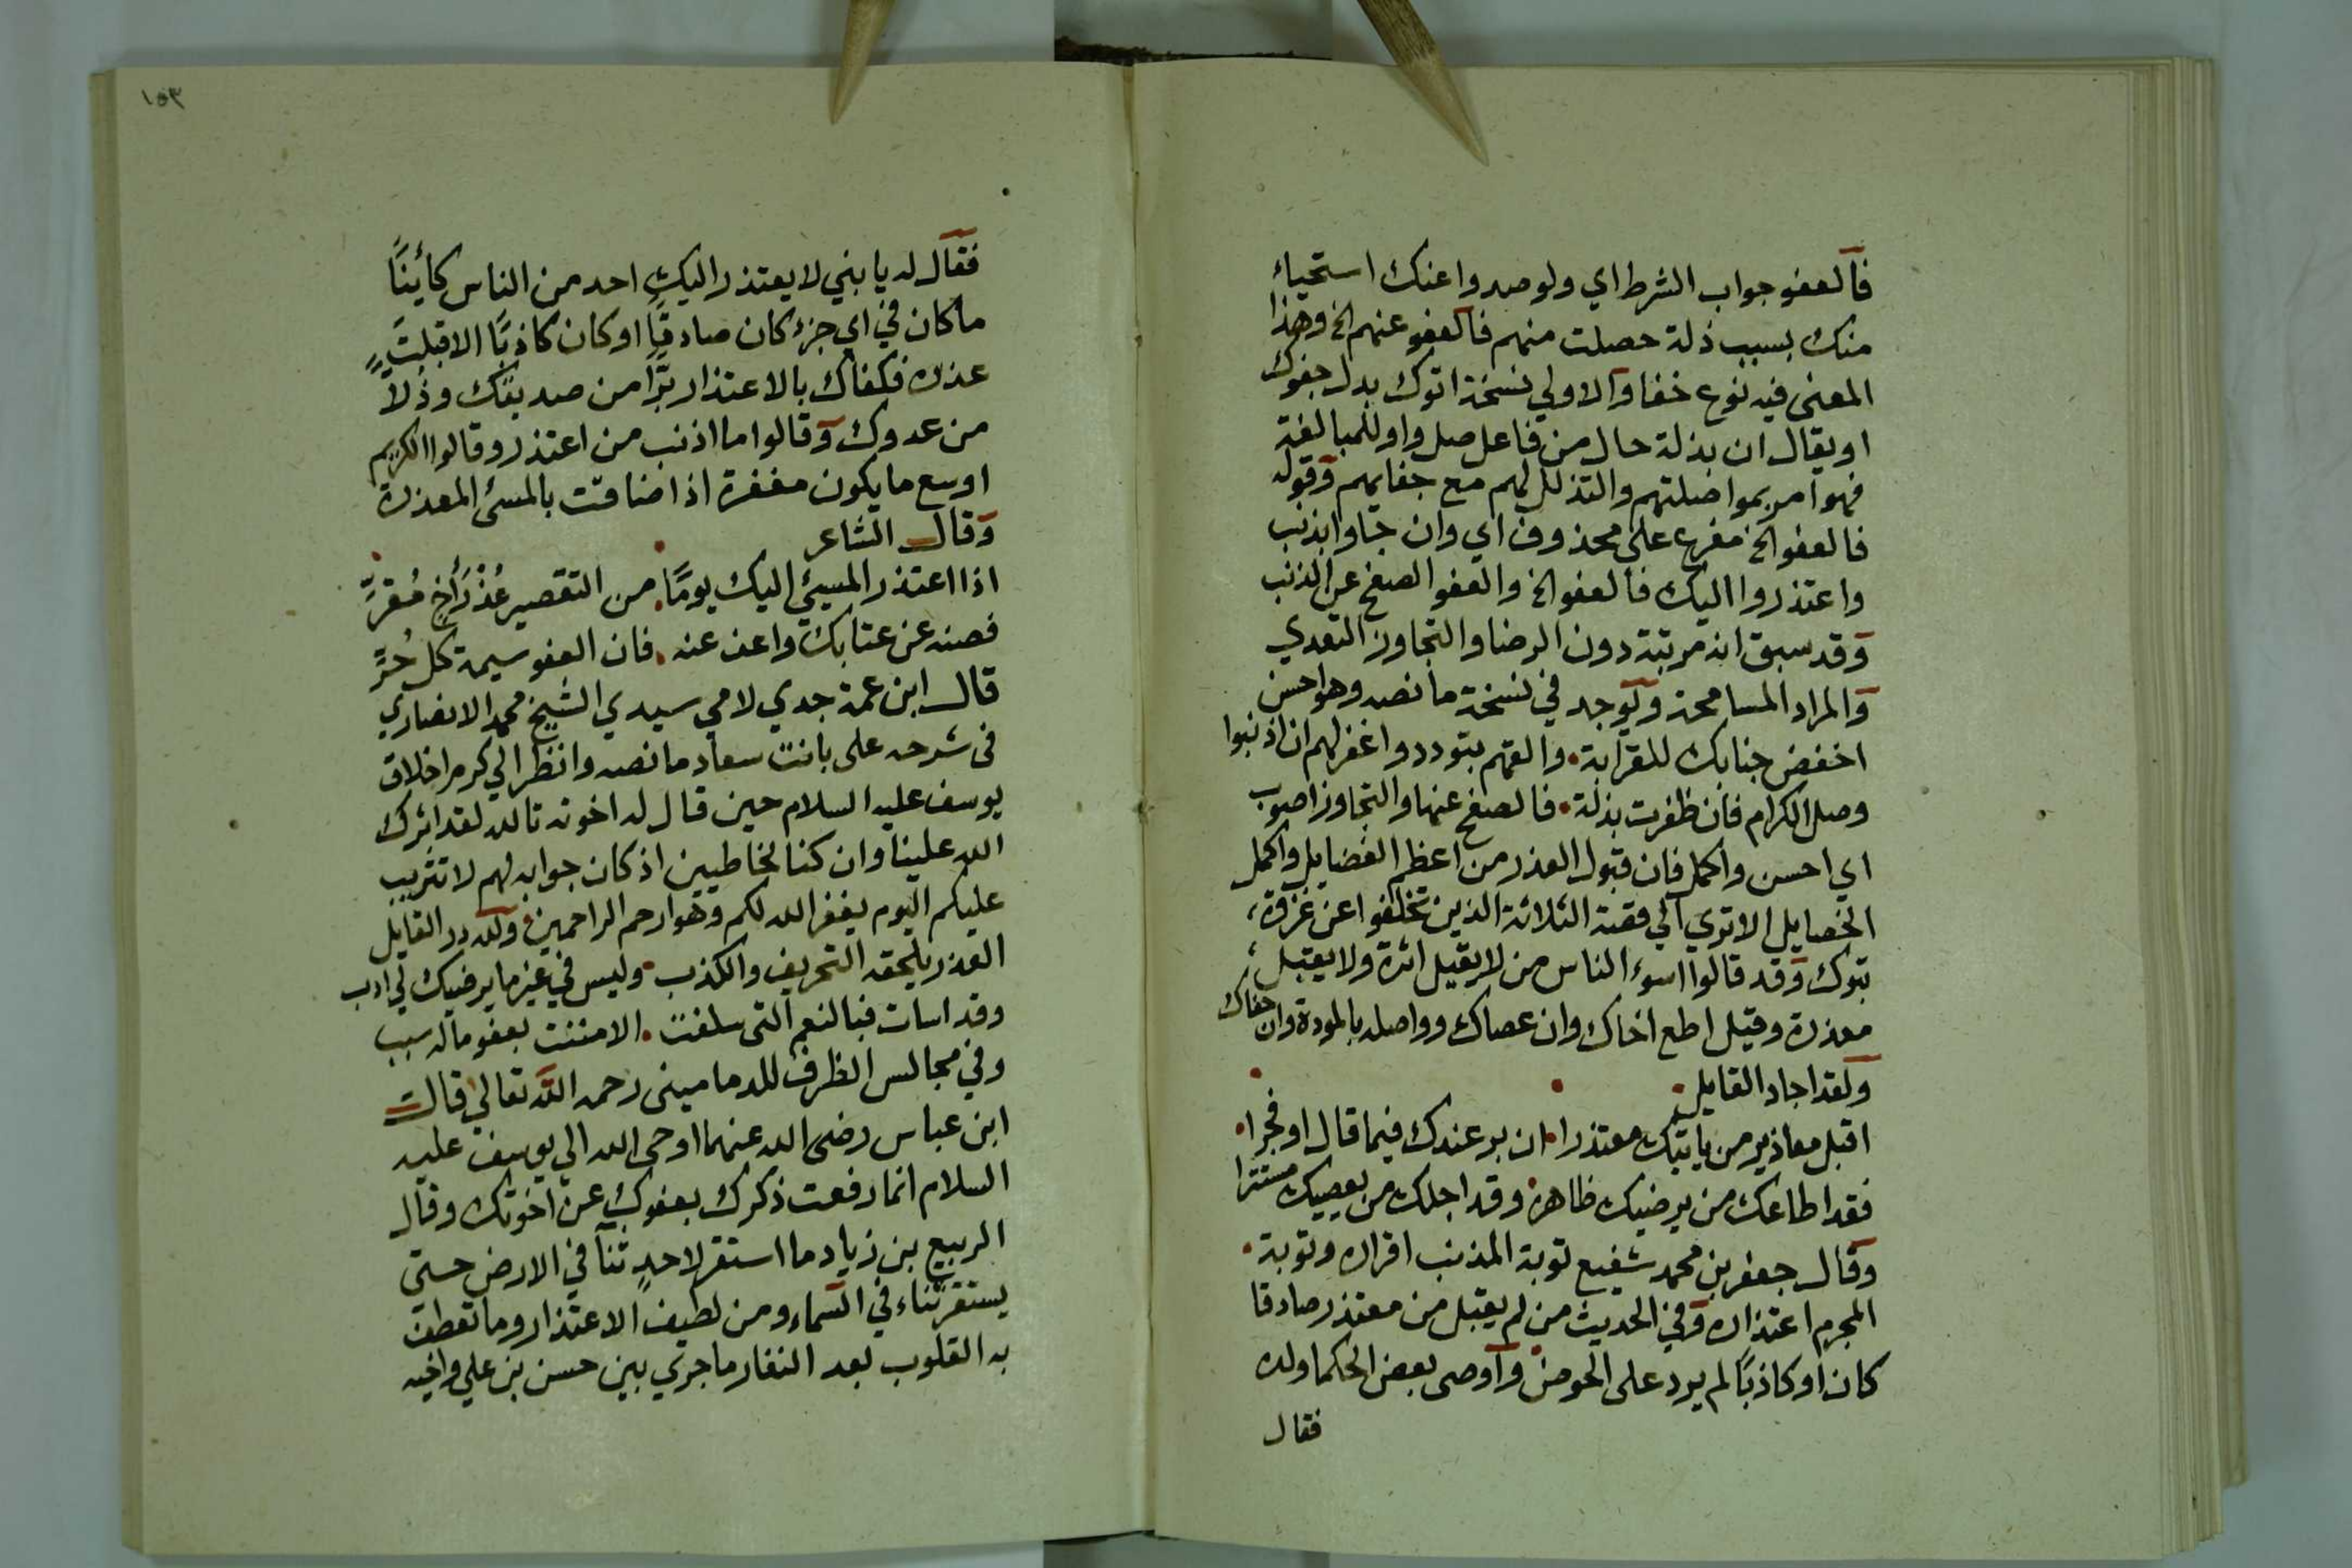 فالعفو جواب الشرط اي ولو صدوا عنك استحياء
منك بسبب ذلة حصلت منهم فالعفو عنهم الخ وهذا
المعنى فيه نوع خفا والاولي نسخة اتوك بدل جفوك
او يقال ان بذلة حال من فاعل صل واو للمبالغة
فهو امر بمواصلتهم والتذلل لهم مع جفايهم وقوله
فالعفو الخ مفرع على محذوف اي وان جاوا بذنب
واعتذروا اليك فالعفو الخ والعفو الصفح عن الذنب
وقد سبق انه مرتبة دون الرضا والتجاوز التعدي
والمراد المسامحة ويوجد في نسخة ما نصه وهو احسن
اخفض جنابك للقرابة. والقهم بتودد واغفر لهم ان اذنبوا
وصل الكرام فان ظفرت بذلة. فالصفح عنها والتجاوز اصوب
اي احسن واكمل فان قبول العذر من اعظم الفضايل واكمل
الخصايل الا تري الي قصة الثلاثة الذين تخلفوا عن غزوة
تبوك وقد قالوا اسوء الناس من لا يقيل عثرة ولا يقبل
معذرة وقيل اطع اخاك وان عصاك وواصله بالمودة وان جفاك
ولقد اجاد القايل
اقبل معاذير من ياتيك معتذرا. ان بر عندك فيما قال او فجرا.
فقد اطاعك من يرضيك ظاهره وقد اجلك من يعصيك مستترا
وقال جعفر بن محمد شفيع توبة المذنب اقراره وتوبة.
المجرم اعتذاره وفي الحديث من لم يقبل من معتذر صادقا
كان او كاذبًا لم يرد على الحوض وأوصى بعض الحكما ولده
فقال
١٥٣
فقال له يا بني لا يعتذر اليك احد من الناس كأينًا
ما كان في اي جزء كان صادقًا او كان كاذبًا الا قبلت
عذره فكفاك بالاعتذار برًّا من صديقك وذلاً
من عدوك وقالوا ما اذنب من اعتذر وقالوا الكريم
اوسع ما يكون مغفرة اذا ضاقت بالمسئ المعذرة
وقال الشاعر
اذا اعتذر المسيئ اليك يومًا. من التقصير عُذْرَ أخٍ مُقرٍّ
فصنه عن عتابك واعف عنه. فان العفو سيمة كل حُرٍّ
قال ابن عمة جدي لامي سيدي الشيخ محمد الانصاري
في شرحه على بانت سعاد ما نصه وانظر الي كرم اخلاق
يوسف عليه السلام حين قال له اخوته تالله لقد اثرك
الله علينا وان كنا لخاطيين اذ كان جوابه لهم لا تثريب
عليكم اليوم يغفر الله لكم وهو ارحم الراحمين ولله در القايل
العذر يلحقه التحريف والكذب. وليس في غير ما يرضيك لي ارب
وقد اسات فبالنعم التي سلفت. الا مننت بعفو ماله سبب
وفي مجالس الظرف للدماميني رحمه الله تعالى قال
ابن عباس رضى الله عنهما اوحى الله الي يوسف عليه
السلام انما رفعت ذكرك بعفوك عن اخوتك وقال
الربيع بن زياد ما استقر لاحدٍ ثنآ في الارض حتى
يستقر ثناء في السماء ومن لطيف الاعتذار وما تعطف
به القلوب بعد النفار ما جري بين حسن بن علي واخيه